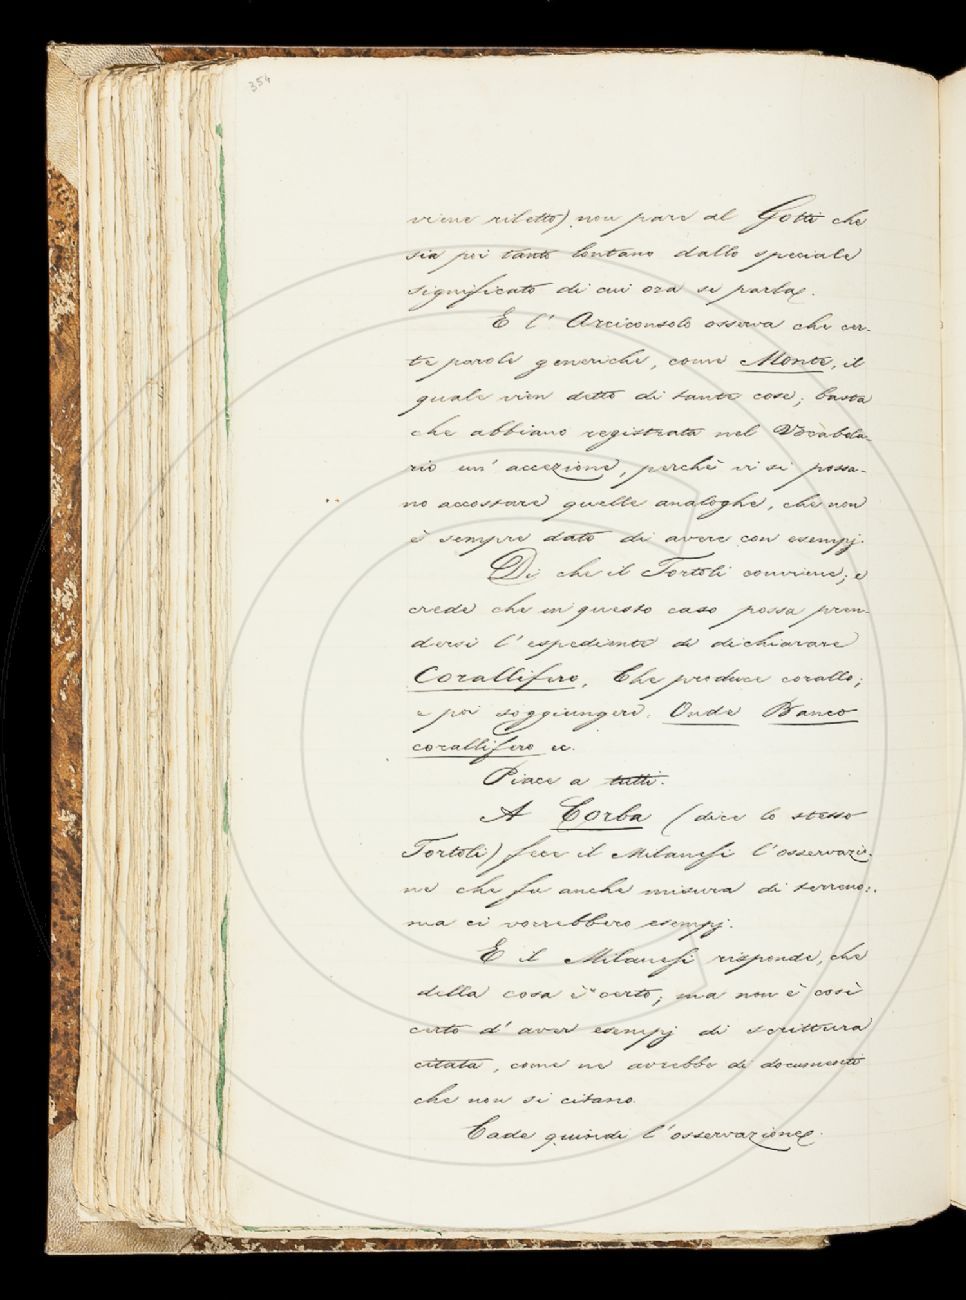 354
viene riletto) non pare al Gotti che
sia poi tanto lontano dallo speciale
significato di cui ora si parla.
E l'Arciconsolo osserva che cer-
te parole generiche, come Monte, il
quale vien detto di tante cose; basta
che abbiano registrata nel Vocabola-
rio un'accezione, perchè vi si possa-
no accostare quelle analoghe, che non
è sempre dato di avere con esempj.
Di che il Tortoli conviene; e
crede che in questo caso possa pren-
dersi l'espediente di dichiarare
Corallifero, Che produce corallo;
e poi soggiungere. Onde Banco
corallifero ec.
Piace a tutti.
A Corba (dice lo stesso
Tortoli) fece il Milanesi l'osservazio-
ne che fu anche misura di terreno:
ma ci vorrebbero esempj.
E il Milanesi risponde, che
della cosa è certo; ma non è così
certo d'aver esempj di scrittura
citata, come ne avrebbe di documenti
che non si citano.
Cade quindi l'osservazione.